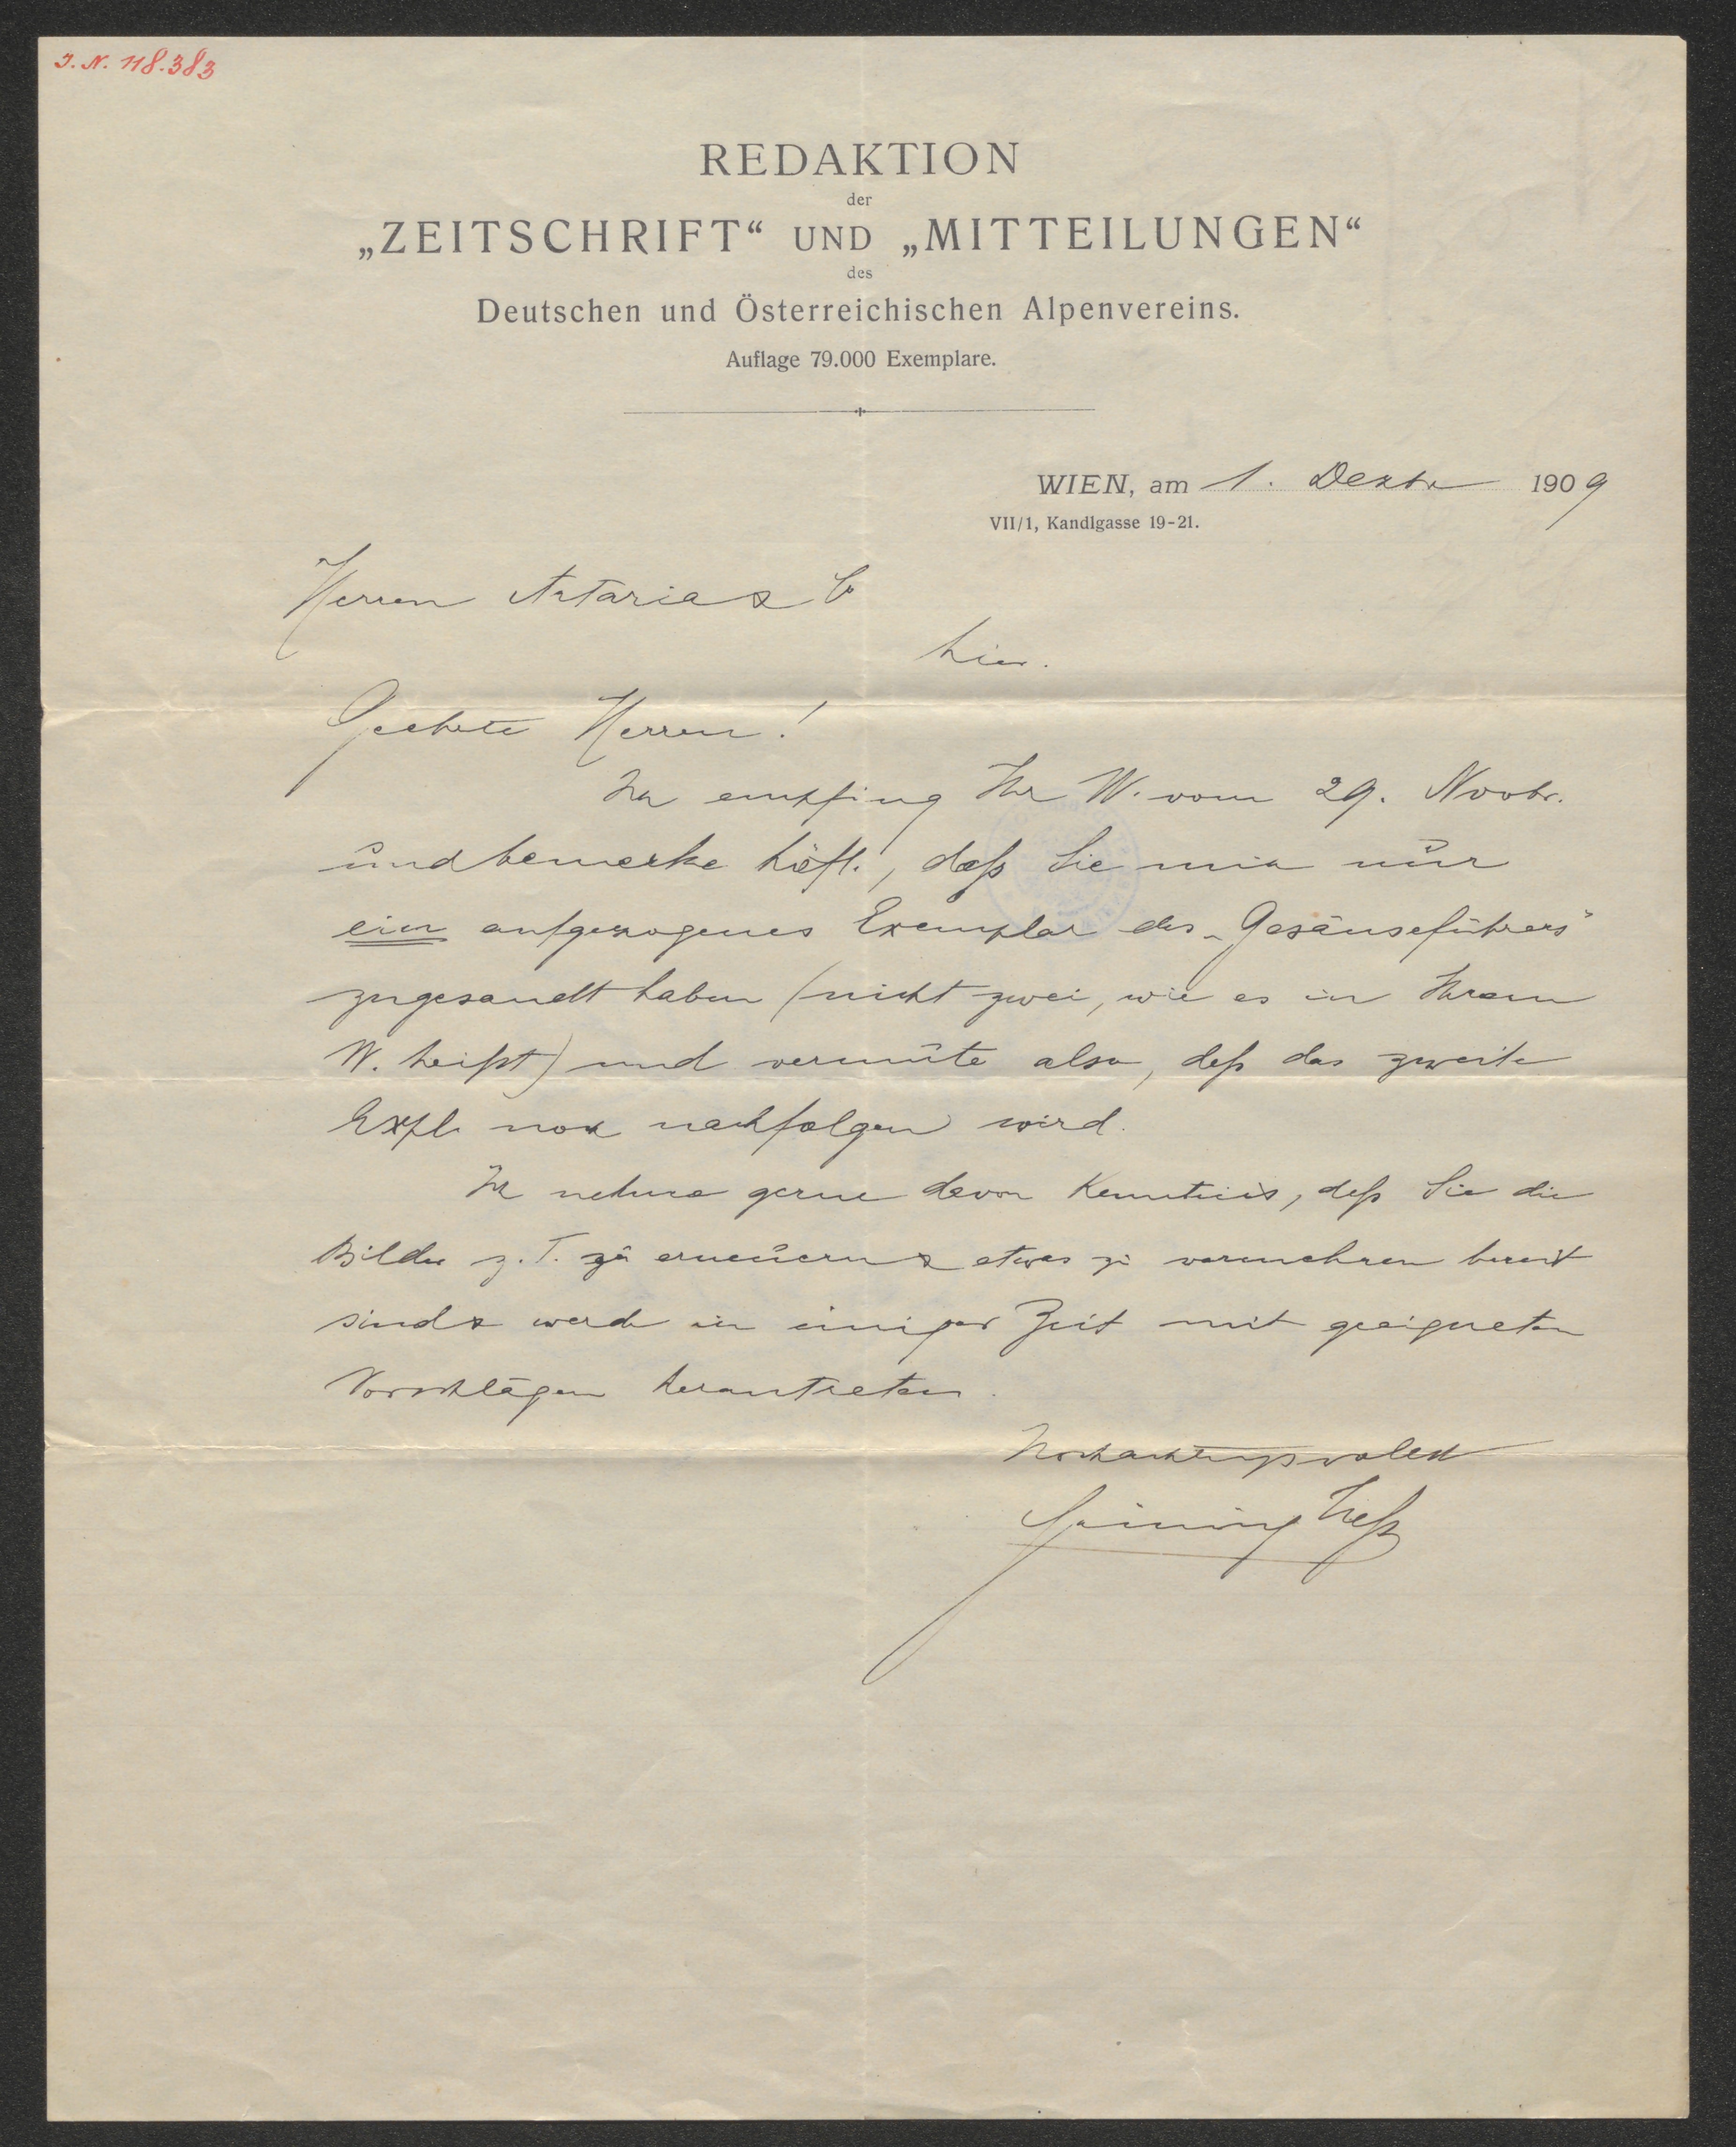 J. N. 118.383
REDAKTION
der
„ZEITSCHRIFT“ UND „MITTEILUNGEN“
des
Deutschen und Österreichischen Alpenvereins.
Auflage 79.000 Exemplare.
WIEN, am 1. Dezbr 1909
VII/1, Kandlgasse 19-21.
Herren Artaria & Co
hier.
Geehrte Herren!
Ich empfing Ihr W. vom 29. Novbr.
und bemerke höfl., daß Sie mir nur
ein aufgezogenes Exemplar des „Gesäuseführers“
zugesandt haben (nicht zwei, wie es in Ihrem
W. heißt) und vermute also, daß das zweite
Expl. noch nachfolgen wird.
Ich nehme gerne davon Kenntnis, daß Sie die
Bilder z. T. zu erneuern & etwas zu vermehren bereit
sind & werde in einiger Zeit mit geeigneten
Vorschlägen herantreten.
Hochachtungsvollst
Heinrich Heß